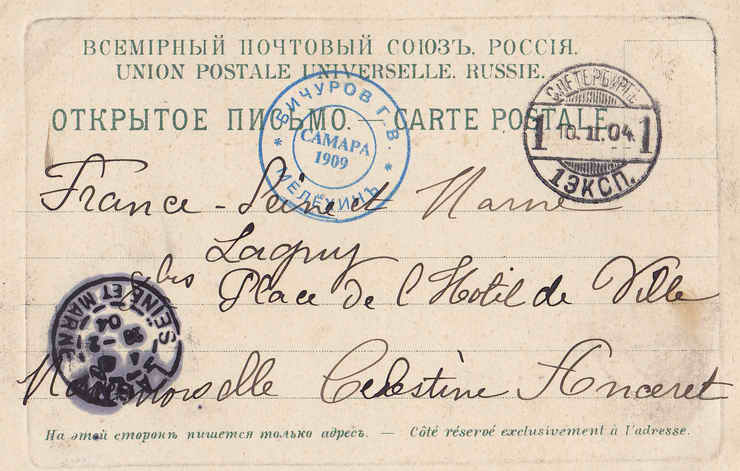 ВСЕМІРНЫЙ ПОЧТОВЫЙ СОЮЗЪ. РОССІЯ.
UNION POSTALE UNIVERSELLE. RUSSIE.
ОТКРЫТОЕ ПИСЬМО. — CARTE POSTALE.
БИЧУРОВ Г. В.
САМАРА
1909
* МЕЛЁХИНЪ *
С.ПЕТЕРБУРГЪ
1 10. II. 04 1
1 ЭКСП.
France - Seine et Marne
Lagny
Place de l'Hotel de Ville
SEINE ET MARNE
04
Celestine Anceret
На этой сторонѣ пишется только адресъ. — Côté réservé exclusivement à l'adresse.